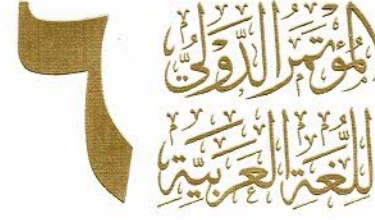 المُؤْتَمَرُ الدَّوْلِيُّ
٦
لِلُّغَةِ العَرَبِيَّةِ